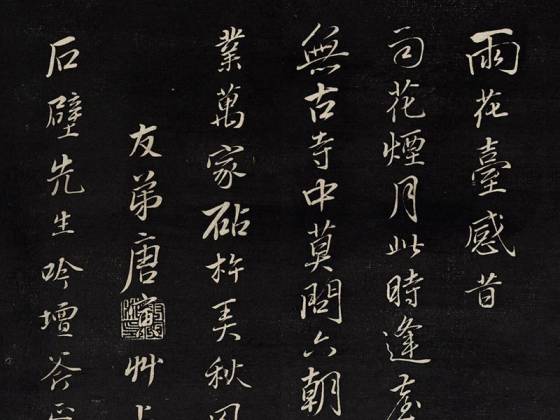 雨花臺感昔
司花煙月此時逢
無古寺中莫問六朝
業萬家砧杵弄秋風
友弟唐寅艸上
石壁先生吟壇荅